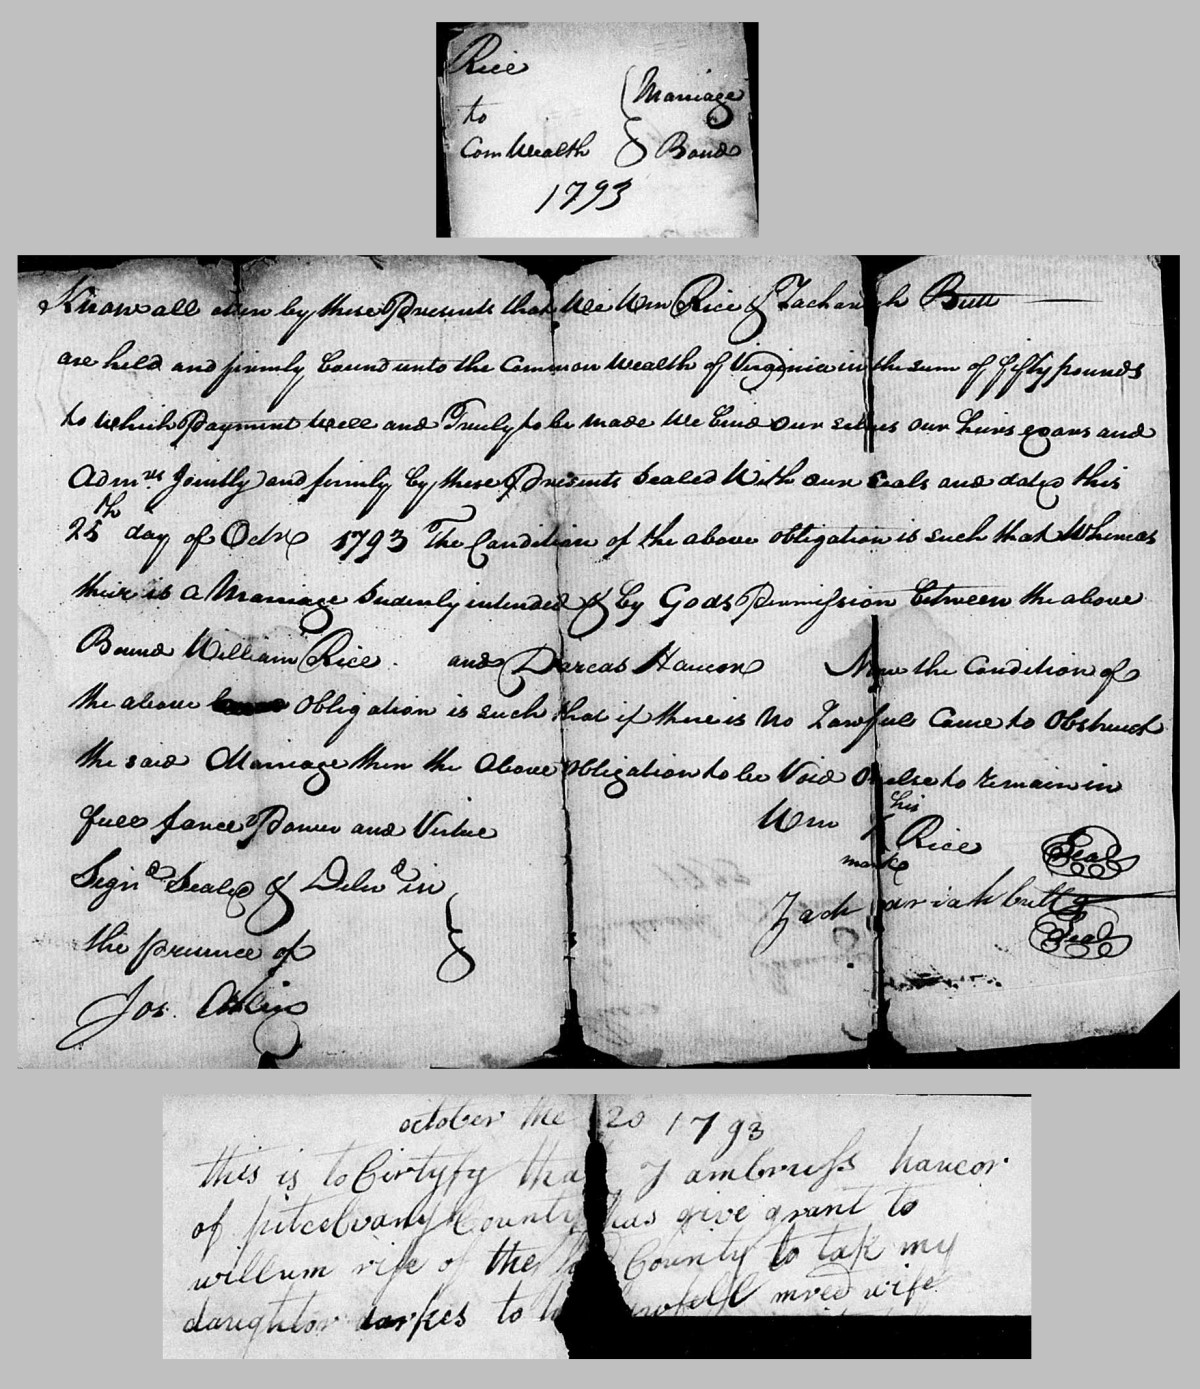 Rice
to
ComWealth
Marriage
Bond
1793
Know all men by these Presents that We Wm Rice & Zachariah Butt
are held and firmly bound unto the Common Wealth of Virginia in the sum of fifty pounds
to which Payment well and Truly to be made We bind our selves our heirs exors and
Admrs Jointly and firmly by these Presents Sealed With our seals and dated this
25th day of Octr 1793 The Condition of the above obligation is such that Whereas
their is a Marriage sudenly intended & by Gods Permission between the above
Bound William Rice and Darcas Hancor Now the Condition of
the above obligation is such that if there is no Lawful Cause to Obstruct
the said Marriage then the Above Obligation to be Void or else to remain in
full force Power and Virtue
Wm his Rice Seal
mark
Signd Seald & Delivd in
Zachariah butt Seal
the presence of
Jos.
october the 20 1793
this is to Cirtyfy that I ambruss hancor
of pitcelvany County has give grant to
willum rise of the County to tak my
daughtor darkes to lawfell mred wife